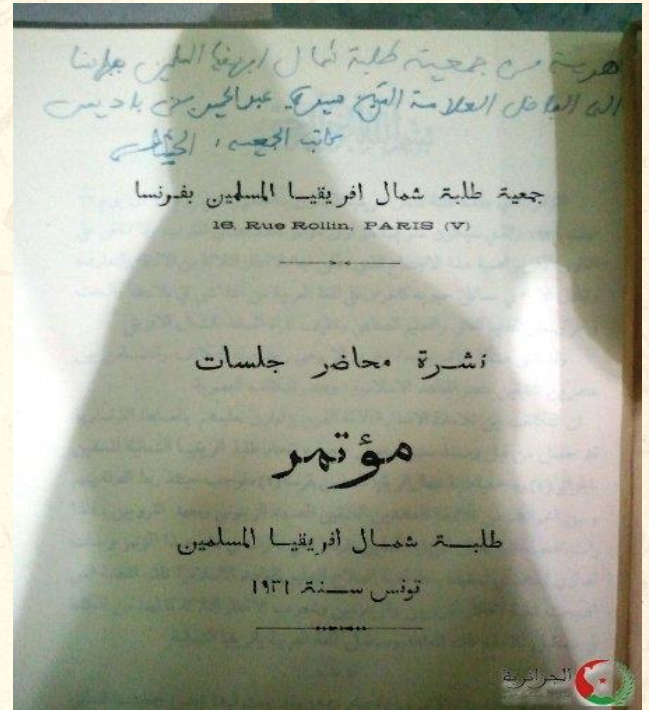 هدية من جمعية طلبة شمال افريقيا المسلمين بفرنسا
الى الفاضل العلامة الشيخ سيدي عبد الحميد بن باديس
كاتب الجمعية
جمعية طلبة شمال افريقيا المسلمين بفرنسا
16, Rue Rollin, PARIS (V)
نشرة محاضر جلسات
مؤتمر
طلبة شمال افريقيا المسلمين
تونس سنة ١٩٣١
الجزائرية